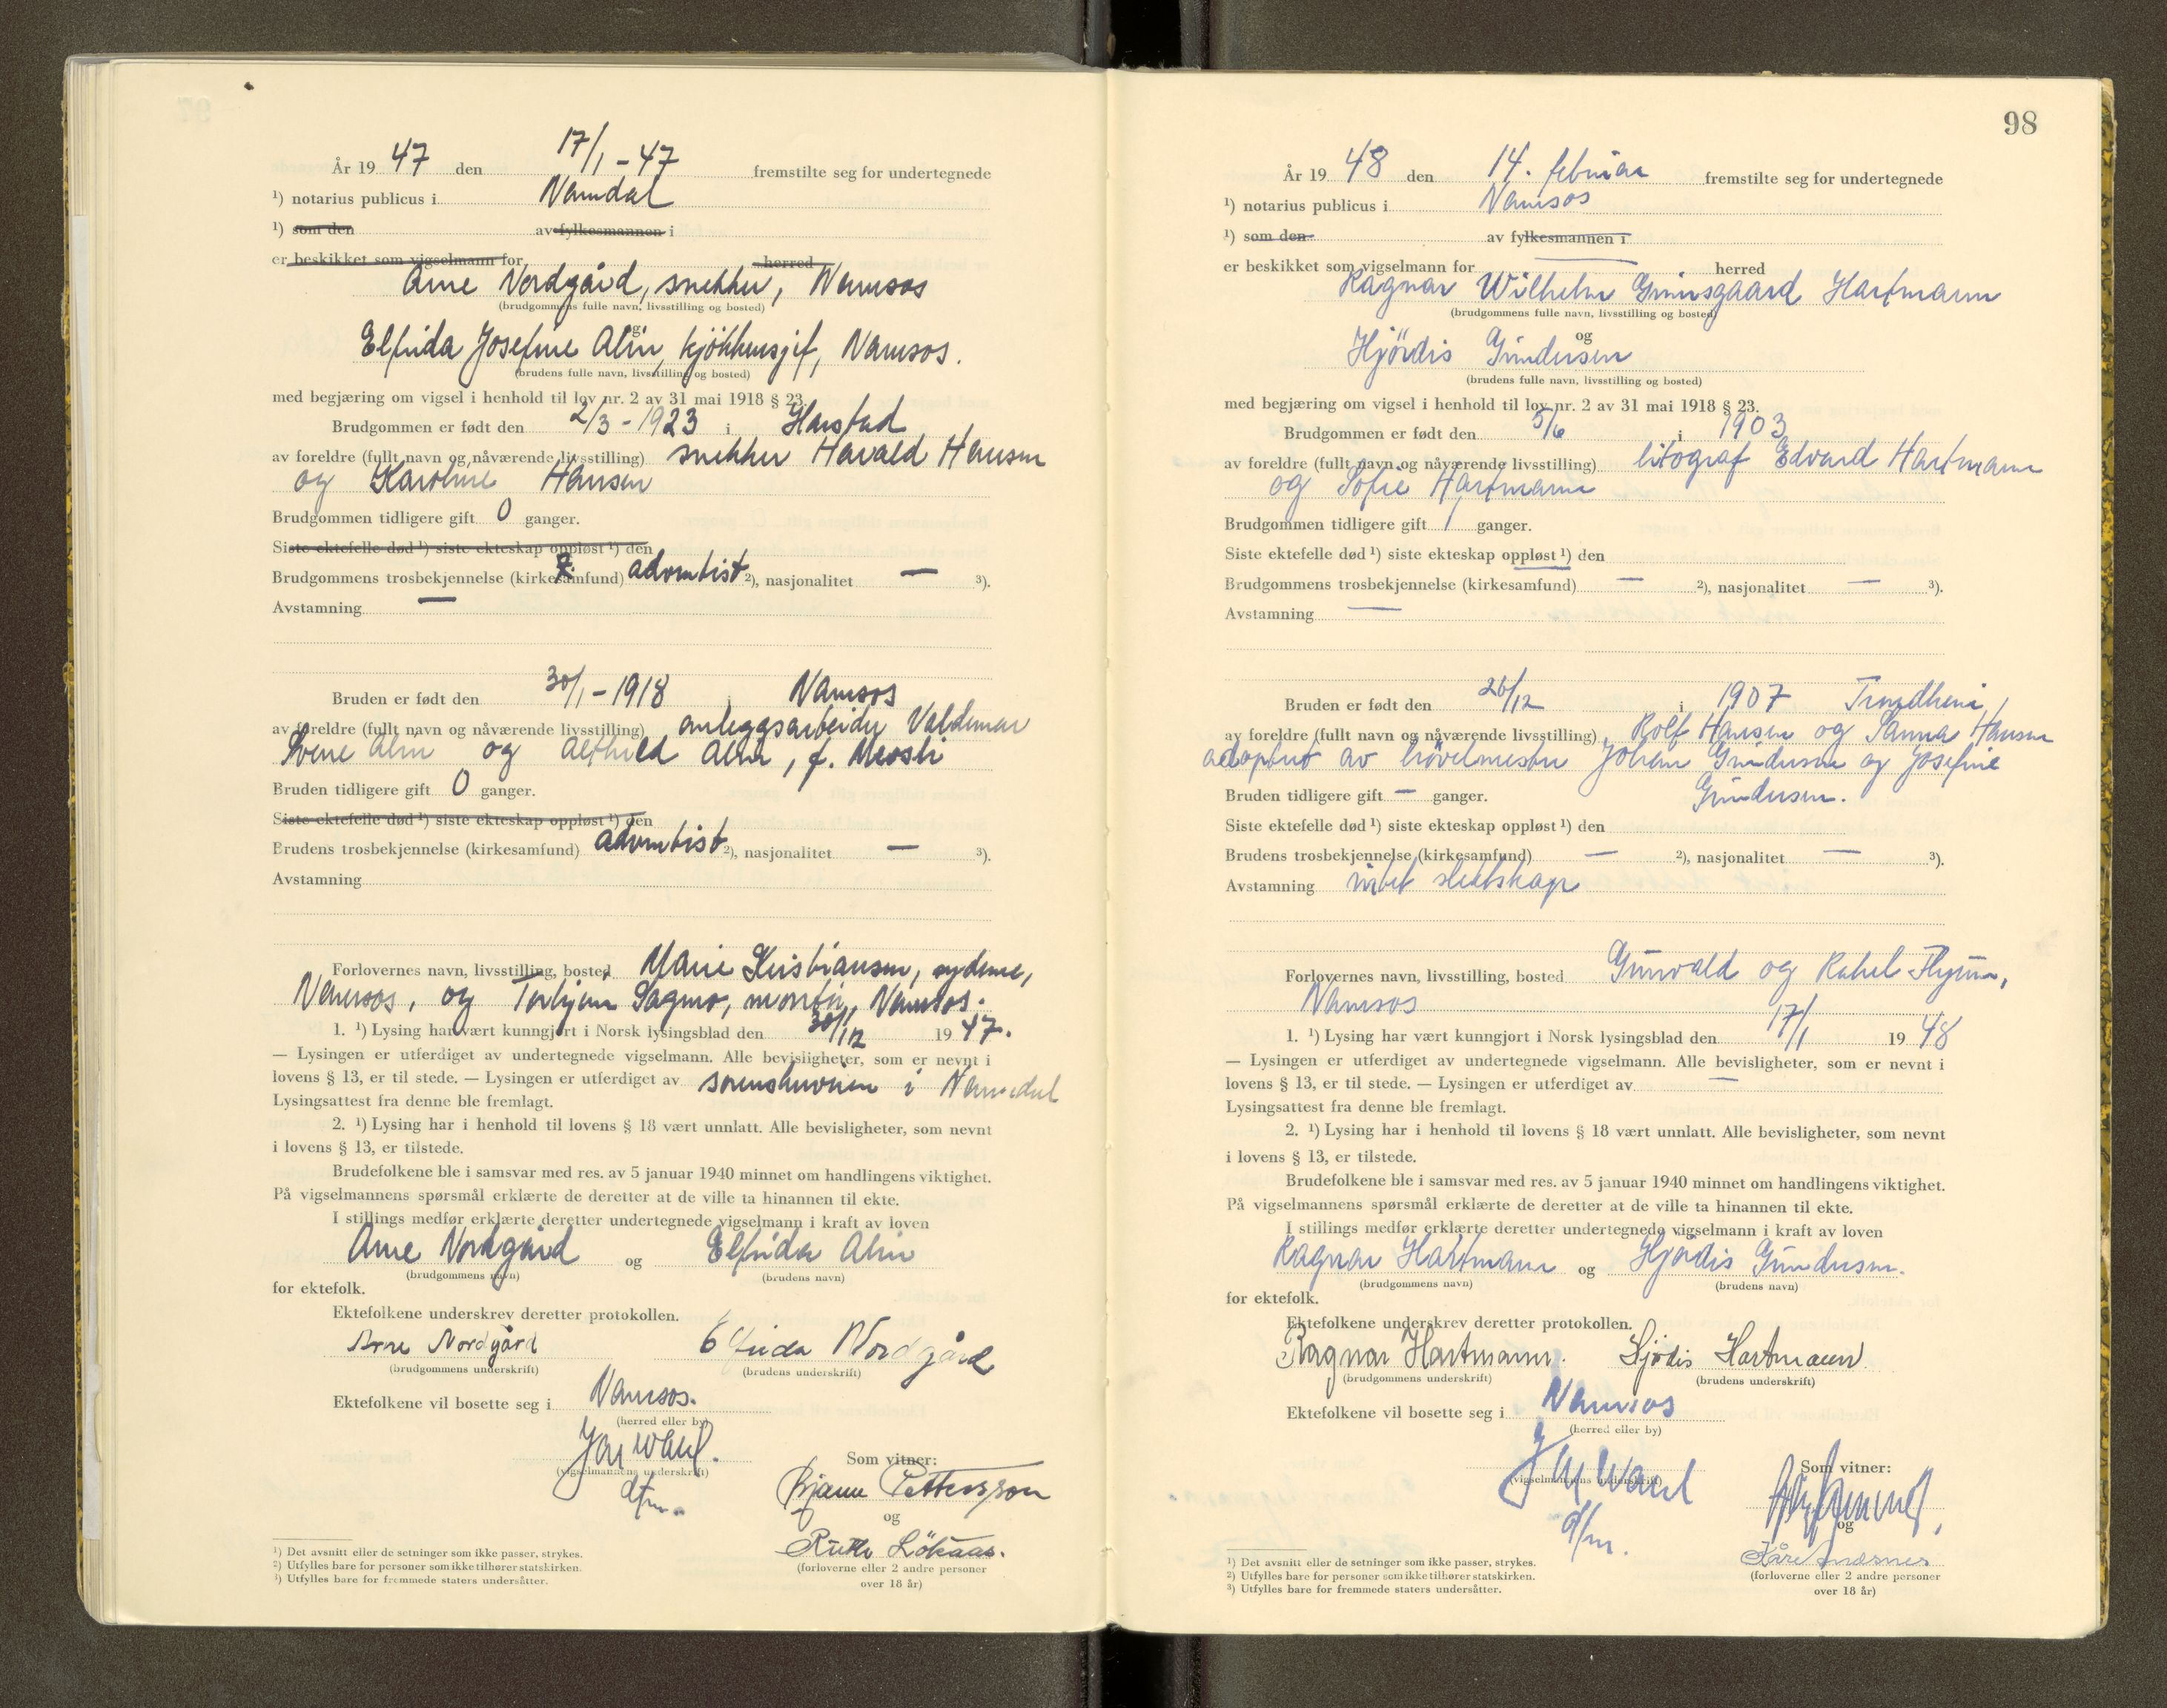 År 19 47 den 17/1 - 47 fremstilte seg for undertegnede
¹) notarius publicus i Namdal
¹) som den av fylkesmannen i
er beskikket som vigselmann for herred
Arne Nordgård, snekker, Namsos
(brudgommens fulle navn, livsstilling og bosted)
og
Elfrida Josefine Alin, kjökkensjef, Namsos.
(brudens fulle navn, livsstilling og bosted)
med begjæring om vigsel i henhold til lov nr. 2 av 31 mai 1918 § 23.
Brudgommen er født den 2/3 - 1923 i Harstad
av foreldre (fullt navn og nåværende livsstilling) snekker Harald Hansen
og Karoline Hansen
Brudgommen tidligere gift 0 ganger.
Siste ektefelle død ¹) siste ekteskap oppløst ¹) den
Brudgommens trosbekjennelse (kirkesamfund) 7. adventist ²), nasjonalitet — ³).
Avstamning —
Bruden er født den 30/1 - 1918 i Namsos
av foreldre (fullt navn og nåværende livsstilling) anleggsarbeider Valdemar
Alin og Alin, f.
Bruden tidligere gift 0 ganger.
Siste ektefelle død ¹) siste ekteskap oppløst ¹) den
Brudens trosbekjennelse (kirkesamfund) adventist ²), nasjonalitet — ³).
Avstamning
Forlovernes navn, livsstilling, bosted Marie Kristiansen, sydame,
Namsos, og Torbjørn Sagmo, montør, Namsos.
1. ¹) Lysing har vært kunngjort i Norsk lysingsblad den 30/12 19 47.
— Lysingen er utferdiget av undertegnede vigselmann. Alle bevisligheter, som er nevnt i
lovens § 13, er til stede. — Lysingen er utferdiget av sorenskriveren i Namdal
Lysingsattest fra denne ble fremlagt.
2. ¹) Lysing har i henhold til lovens § 18 vært unnlatt. Alle bevisligheter, som nevnt
i lovens § 13, er tilstede.
Brudefolkene ble i samsvar med res. av 5 januar 1940 minnet om handlingens viktighet.
På vigselmannens spørsmål erklærte de deretter at de ville ta hinannen til ekte.
I stillings medfør erklærte deretter undertegnede vigselmann i kraft av loven
Arne Nordgård og Elfrida Alin
(brudgommens navn) (brudens navn)
for ektefolk.
Ektefolkene underskrev deretter protokollen.
Arne Nordgård Elfrida Nordgård
(brudgommens underskrift) (brudens underskrift)
Ektefolkene vil bosette seg i Namsos.
(herred eller by)
(vigselmannens underskrift)
dfm.
Som vitner:
Bjarne Pettersson
og
Ruth Lökaas.
(forloverne eller 2 andre personer
over 18 år)
¹) Det avsnitt eller de setninger som ikke passer, strykes.
²) Utfylles bare for personer som ikke tilhører statskirken.
³) Utfylles bare for fremmede staters undersåtter.
98
År 19 48 den 14. februar fremstilte seg for undertegnede
¹) notarius publicus i Namsos
¹) som den av fylkesmannen i
er beskikket som vigselmann for — herred
Ragnar Wilhelm Grimsgaard Hartmann
(brudgommens fulle navn, livsstilling og bosted)
og
Hjördis Gundersen
(brudens fulle navn, livsstilling og bosted)
med begjæring om vigsel i henhold til lov nr. 2 av 31 mai 1918 § 23.
Brudgommen er født den 5/6 i 1903
av foreldre (fullt navn og nåværende livsstilling) litograf Edvard Hartmann
og Sofie Hartmann
Brudgommen tidligere gift 1 ganger.
Siste ektefelle død ¹) siste ekteskap oppløst ¹) den
Brudgommens trosbekjennelse (kirkesamfund) — ²), nasjonalitet — ³).
Avstamning —
Bruden er født den 26/12 i 1907 Trondheim
av foreldre (fullt navn og nåværende livsstilling) Rolf Hansen og Sanna Hansen
adoptert av hövelmester Johan Gundersen og Josefine
Gundersen.
Bruden tidligere gift — ganger.
Siste ektefelle død ¹) siste ekteskap oppløst ¹) den
Brudens trosbekjennelse (kirkesamfund) — ²), nasjonalitet — ³).
Avstamning intet slektskap
Forlovernes navn, livsstilling, bosted Gunvald og Rakel
Namsos
1. ¹) Lysing har vært kunngjort i Norsk lysingsblad den 17/1 19 48
— Lysingen er utferdiget av undertegnede vigselmann. Alle bevisligheter, som er nevnt i
lovens § 13, er til stede. — Lysingen er utferdiget av —
Lysingsattest fra denne ble fremlagt.
2. ¹) Lysing har i henhold til lovens § 18 vært unnlatt. Alle bevisligheter, som nevnt
i lovens § 13, er tilstede.
Brudefolkene ble i samsvar med res. av 5 januar 1940 minnet om handlingens viktighet.
På vigselmannens spørsmål erklærte de deretter at de ville ta hinannen til ekte.
I stillings medfør erklærte deretter undertegnede vigselmann i kraft av loven
Ragnar Hartmann og Hjördis Gundersen.
(brudgommens navn) (brudens navn)
for ektefolk.
Ektefolkene underskrev deretter protokollen.
Ragnar Hartmann. Hjördis Hartmann
(brudgommens underskrift) (brudens underskrift)
Ektefolkene vil bosette seg i Namsos
(herred eller by)
(vigselmannens underskrift)
dfm.
Som vitner:
og
Kåre
(forloverne eller 2 andre personer
over 18 år)
¹) Det avsnitt eller de setninger som ikke passer, strykes.
²) Utfylles bare for personer som ikke tilhører statskirken.
³) Utfylles bare for fremmede staters undersåtter.